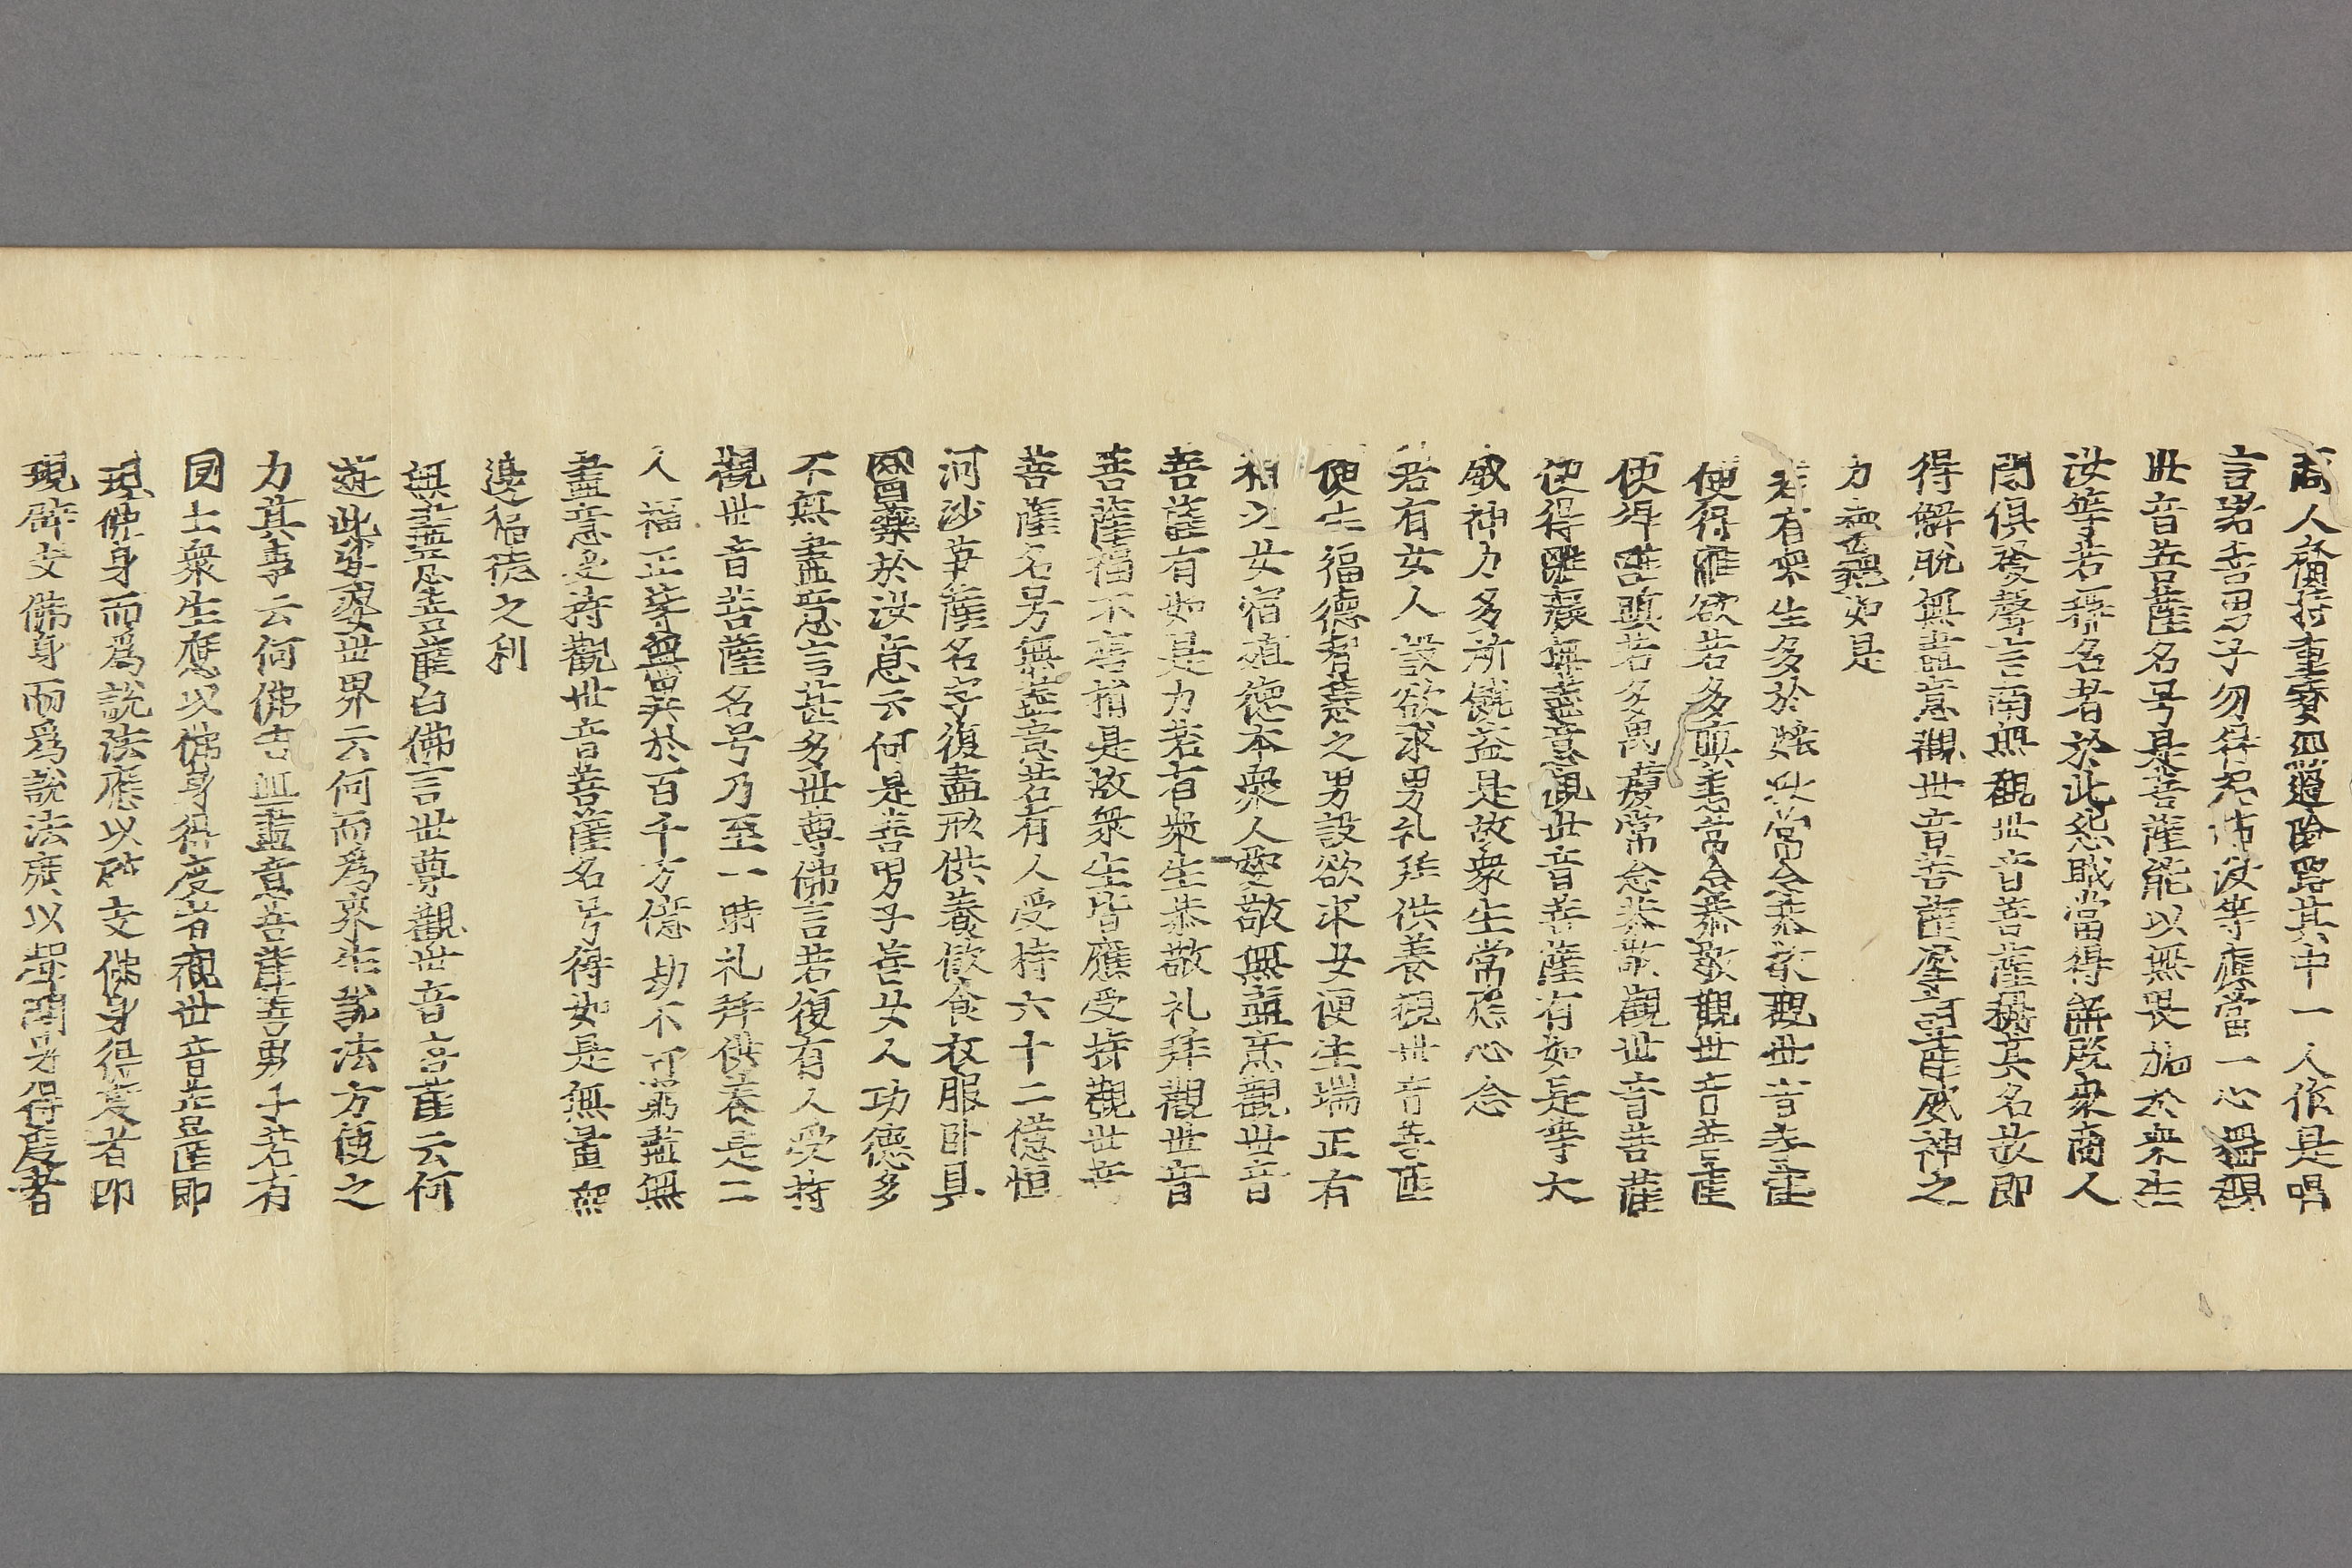 商人齎持重寶經過險路其中一人作是唱
言諸善男子勿得恐怖汝等應當一心稱觀
世音菩薩名号是菩薩能以無畏施於衆生
汝等若稱名者於此怨賊當得解脫衆商人
聞俱發聲言南無觀世音菩薩稱其名故即
得解脫無盡意觀世音菩薩摩訶薩威神之
力巍巍如是
若有衆生多於婬欲常念恭敬觀世音菩薩
便得離欲若多瞋恚常念恭敬觀世音菩薩
便得離瞋若多愚癡常念恭敬觀世音菩薩
便得離癡無盡意觀世音菩薩有如是等大
威神力多所饒益是故衆生常應心念
若有女人設欲求男礼拜供養觀世音菩薩
便生福德智慧之男設欲求女便生端正有
相之女宿殖德本衆人愛敬無盡意觀世音
菩薩有如是力若有衆生恭敬礼拜觀世音
菩薩福不唐捐是故衆生皆應受持觀世音
菩薩名号無盡意若有人受持六十二億恒
河沙菩薩名字復盡形供養飲食衣服卧具
醫藥於汝意云何是善男子善女人功德多
不無盡意言甚多世尊佛言若復有人受持
觀世音菩薩名号乃至一時礼拜供養是二
人福正等無異於百千万億劫不可窮盡無
盡意受持觀世音菩薩名号得如是無量無
邊福德之利
無盡意菩薩白佛言世尊觀世音菩薩云何
遊此娑婆世界云何而爲衆生說法方便之
力其事云何佛告無盡意菩薩善男子若有
國土衆生應以佛身得度者觀世音菩薩即
現佛身而爲說法應以辟支佛身得度者即
現辟支佛身而爲說法應以聲聞身得度者